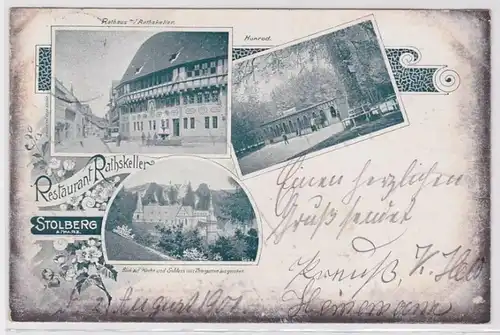 Rathaus m/ Rathskeller.
Hunrod.
Restaurant Rathskeller
STOLBERG
a. Harz.
Blick auf Kirche und Schloss vom Thiergarten aus gesehen
Einen herzlichen
Gruß sendet
2. August 1901.